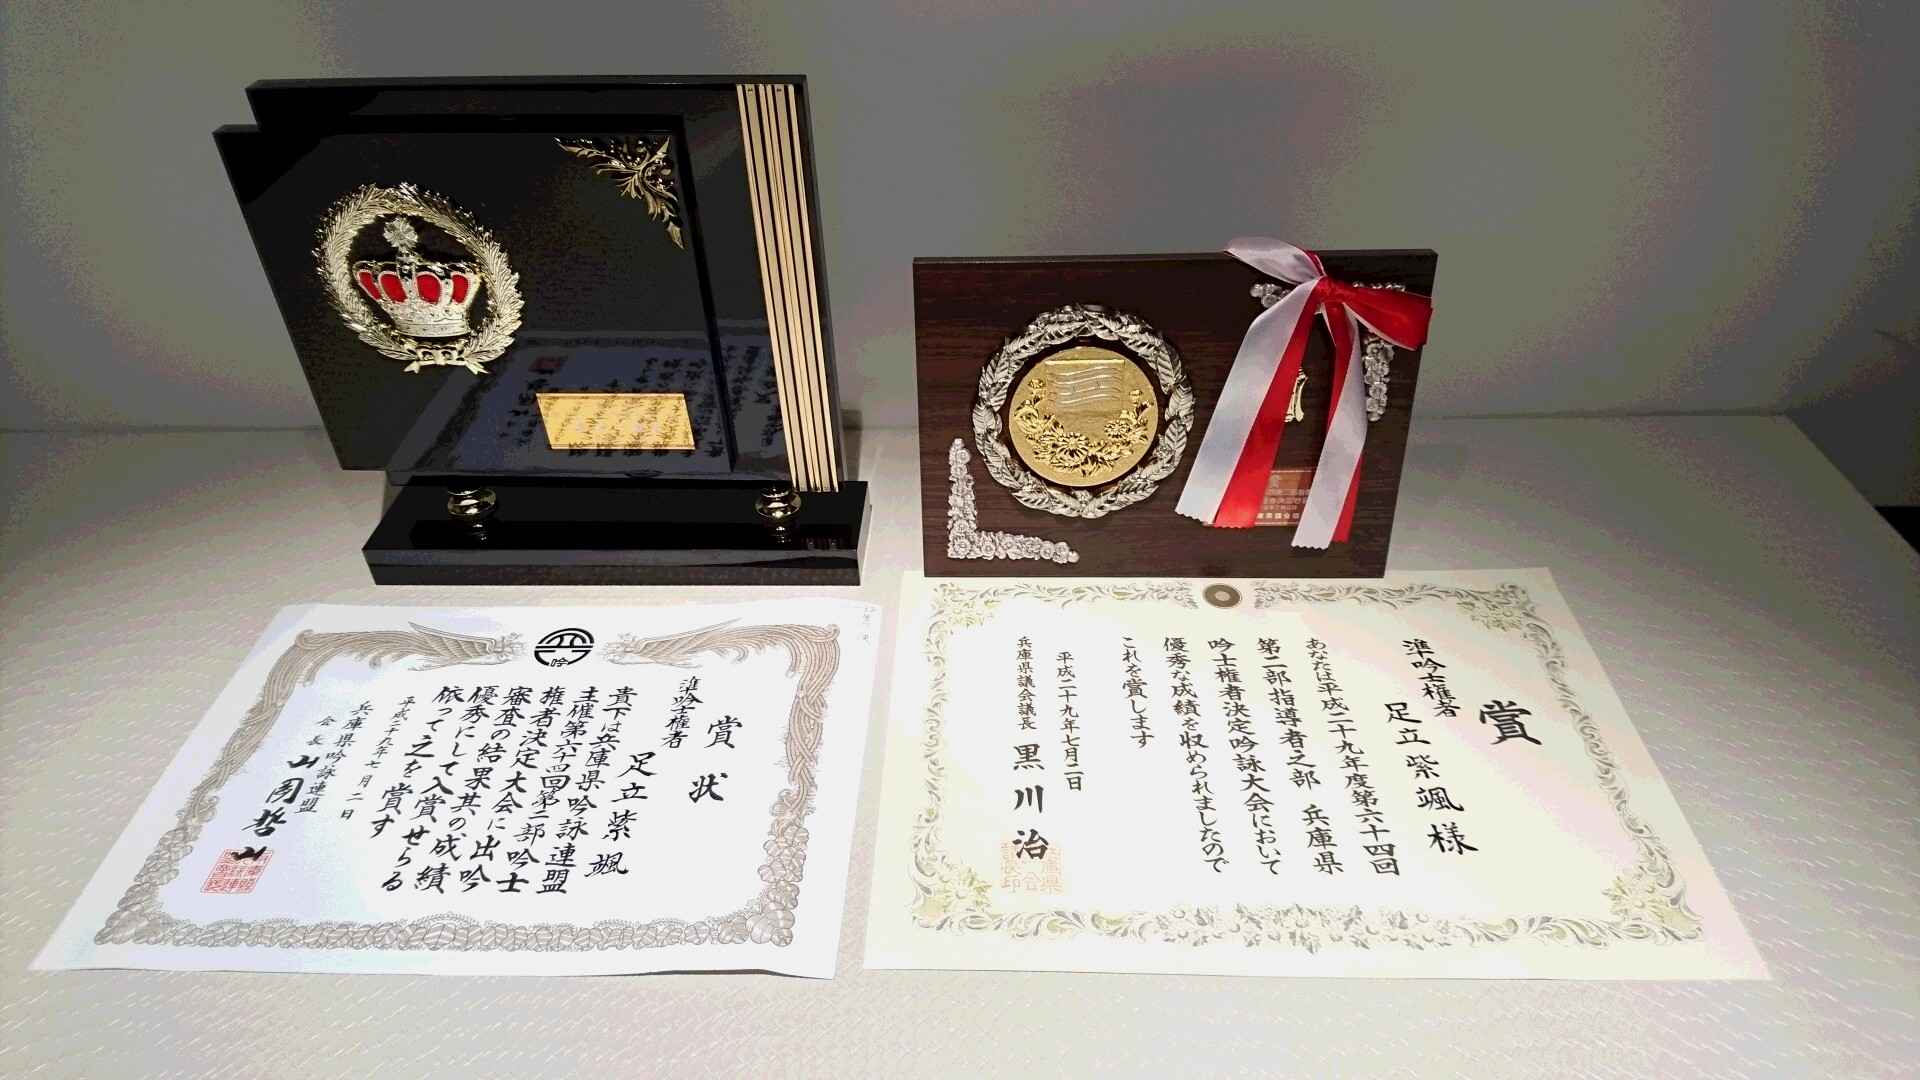 賞状
準吟士権者
足立紫颯
貴下は兵庫県吟詠連盟
主催第六十四回第二部吟士
権者決定大会に出吟
審査の結果其の成績
優秀にして入賞せらる
依って之を賞す
平成二十九年七月二日
兵庫県吟詠連盟
会長
吟
賞
準吟士権者
足立紫颯様
あなたは平成二十九年度第六十四回
第二部指導者之部 兵庫県
吟士権者決定吟詠大会において
優秀な成績を収められましたので
これを賞します
平成二十九年七月二日
兵庫県議会議長 黒川治